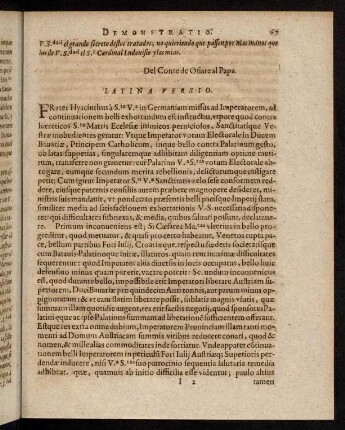 DEMONSTRATIO. 67
V.S.dad el grande secreto destos tratados, no queriendo que passen por mas manos que
las de V.S.dad el S.r Cardinal Ludovisio y las mias.
Del Conte de Oñate al Papa.
LATINA VERSIO.
FRater Hyacinthus à S.te V.ª in Germaniam missus ad Imperatorem, ad
continuationem belli exhortandum est instructus, utpote quod contra
hæreticos S.tæ Matris Ecclesiæ inimicos perniciosos, Sanctitatique Ve-
stræ inobedientes geratur: Utque Imperator votum Electorale in Ducem
Bavariæ, Principem Catholicum, inque bello contra Palatinum gesto,
ob latas suppetias, singularemque adhibitam diligentiam optime meri-
tum, transferre non gravetur: cui Palatino V.S.tas votum Electorale ab-
rogare, eumque secundum merita rebellionis, delictorumque castigare
petit; Cum igitur Imperator S.æ V.æ Sanctimonia zelo sese conformem red-
dere, eiusque paternis consiliis aurem præbere magnopere desideret, mi-
nistris sic mandavit, ut
militer media ad satisfactionem exhortationis V.S. necessaria
res: qui difficultates subnexas, & media, quibus salvari possint, declarature.
Primum inconveniens est; Si Cæsarea Ma.tas ulterius in bello pro-
grediet, quod metuatur, & quasi pro certo habeatur, Venetos rupta pa-
ce, bellum partibus Fori Iulii, Croatiæque, respectu fœderis societatisque
cum Batavis Palatinoque initæ, illaturos: quam rem maximæ difficultates
sequerentur: quod Imperator aliis diversis in locis occupatus, bello huic
defensivo minus quam par erit, vacare poterit: Secundum inconveniens
est, quod durante bello, impossibile erit Imperatori liberare Austriam su-
periorem, Duci Bavariæ pro quindecim Auri tonnis,
pignoratam: & ut eam statim liberare possit, sublatis magnis usuris, quæ
summam eam
latinus itaque ipse Palatinus summam ad liberationem sufficientem offerat.
Estque res extra omne dubium, Imperatorem Provinciam illam tanti mo-
menti ad Domum Austriacam summis viribus reducere conari, quod &
nomen, & mille alias commoditates inde sortiatur. Unde apparet continua-
tionem belli Imperatorem in pericula Fori Iulii, Austriæque Superioris per-
dendæ inducere, nisi V.æ S.tas suo patrocinio quædam salutaria remedia
adhibeat. quæ, quamvis ab initio difficilia esse videntur; paulo altius
I 2 tamen